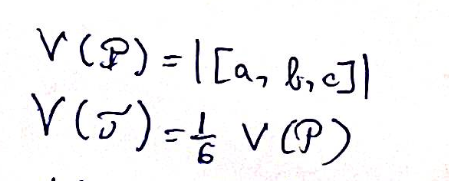 V(P) = |[a, b, c]|
V(T) = 1/6 V(P)